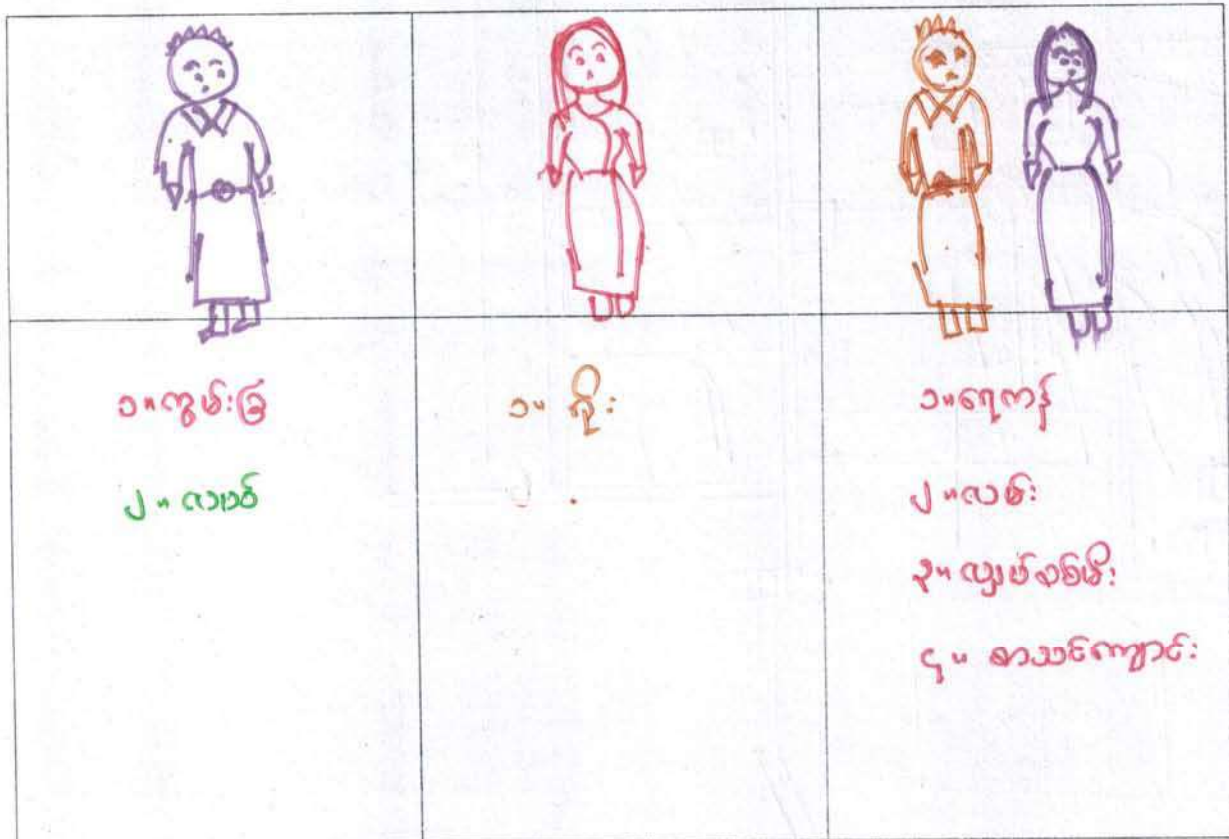 ၁။ ကွမ်းခြံ
၂။
၁။
၂။
၁။ ရေကန်
၂။ လမ်း
၃။ လျှပ်စစ်မီး
၄။ စာသင်ကျောင်း